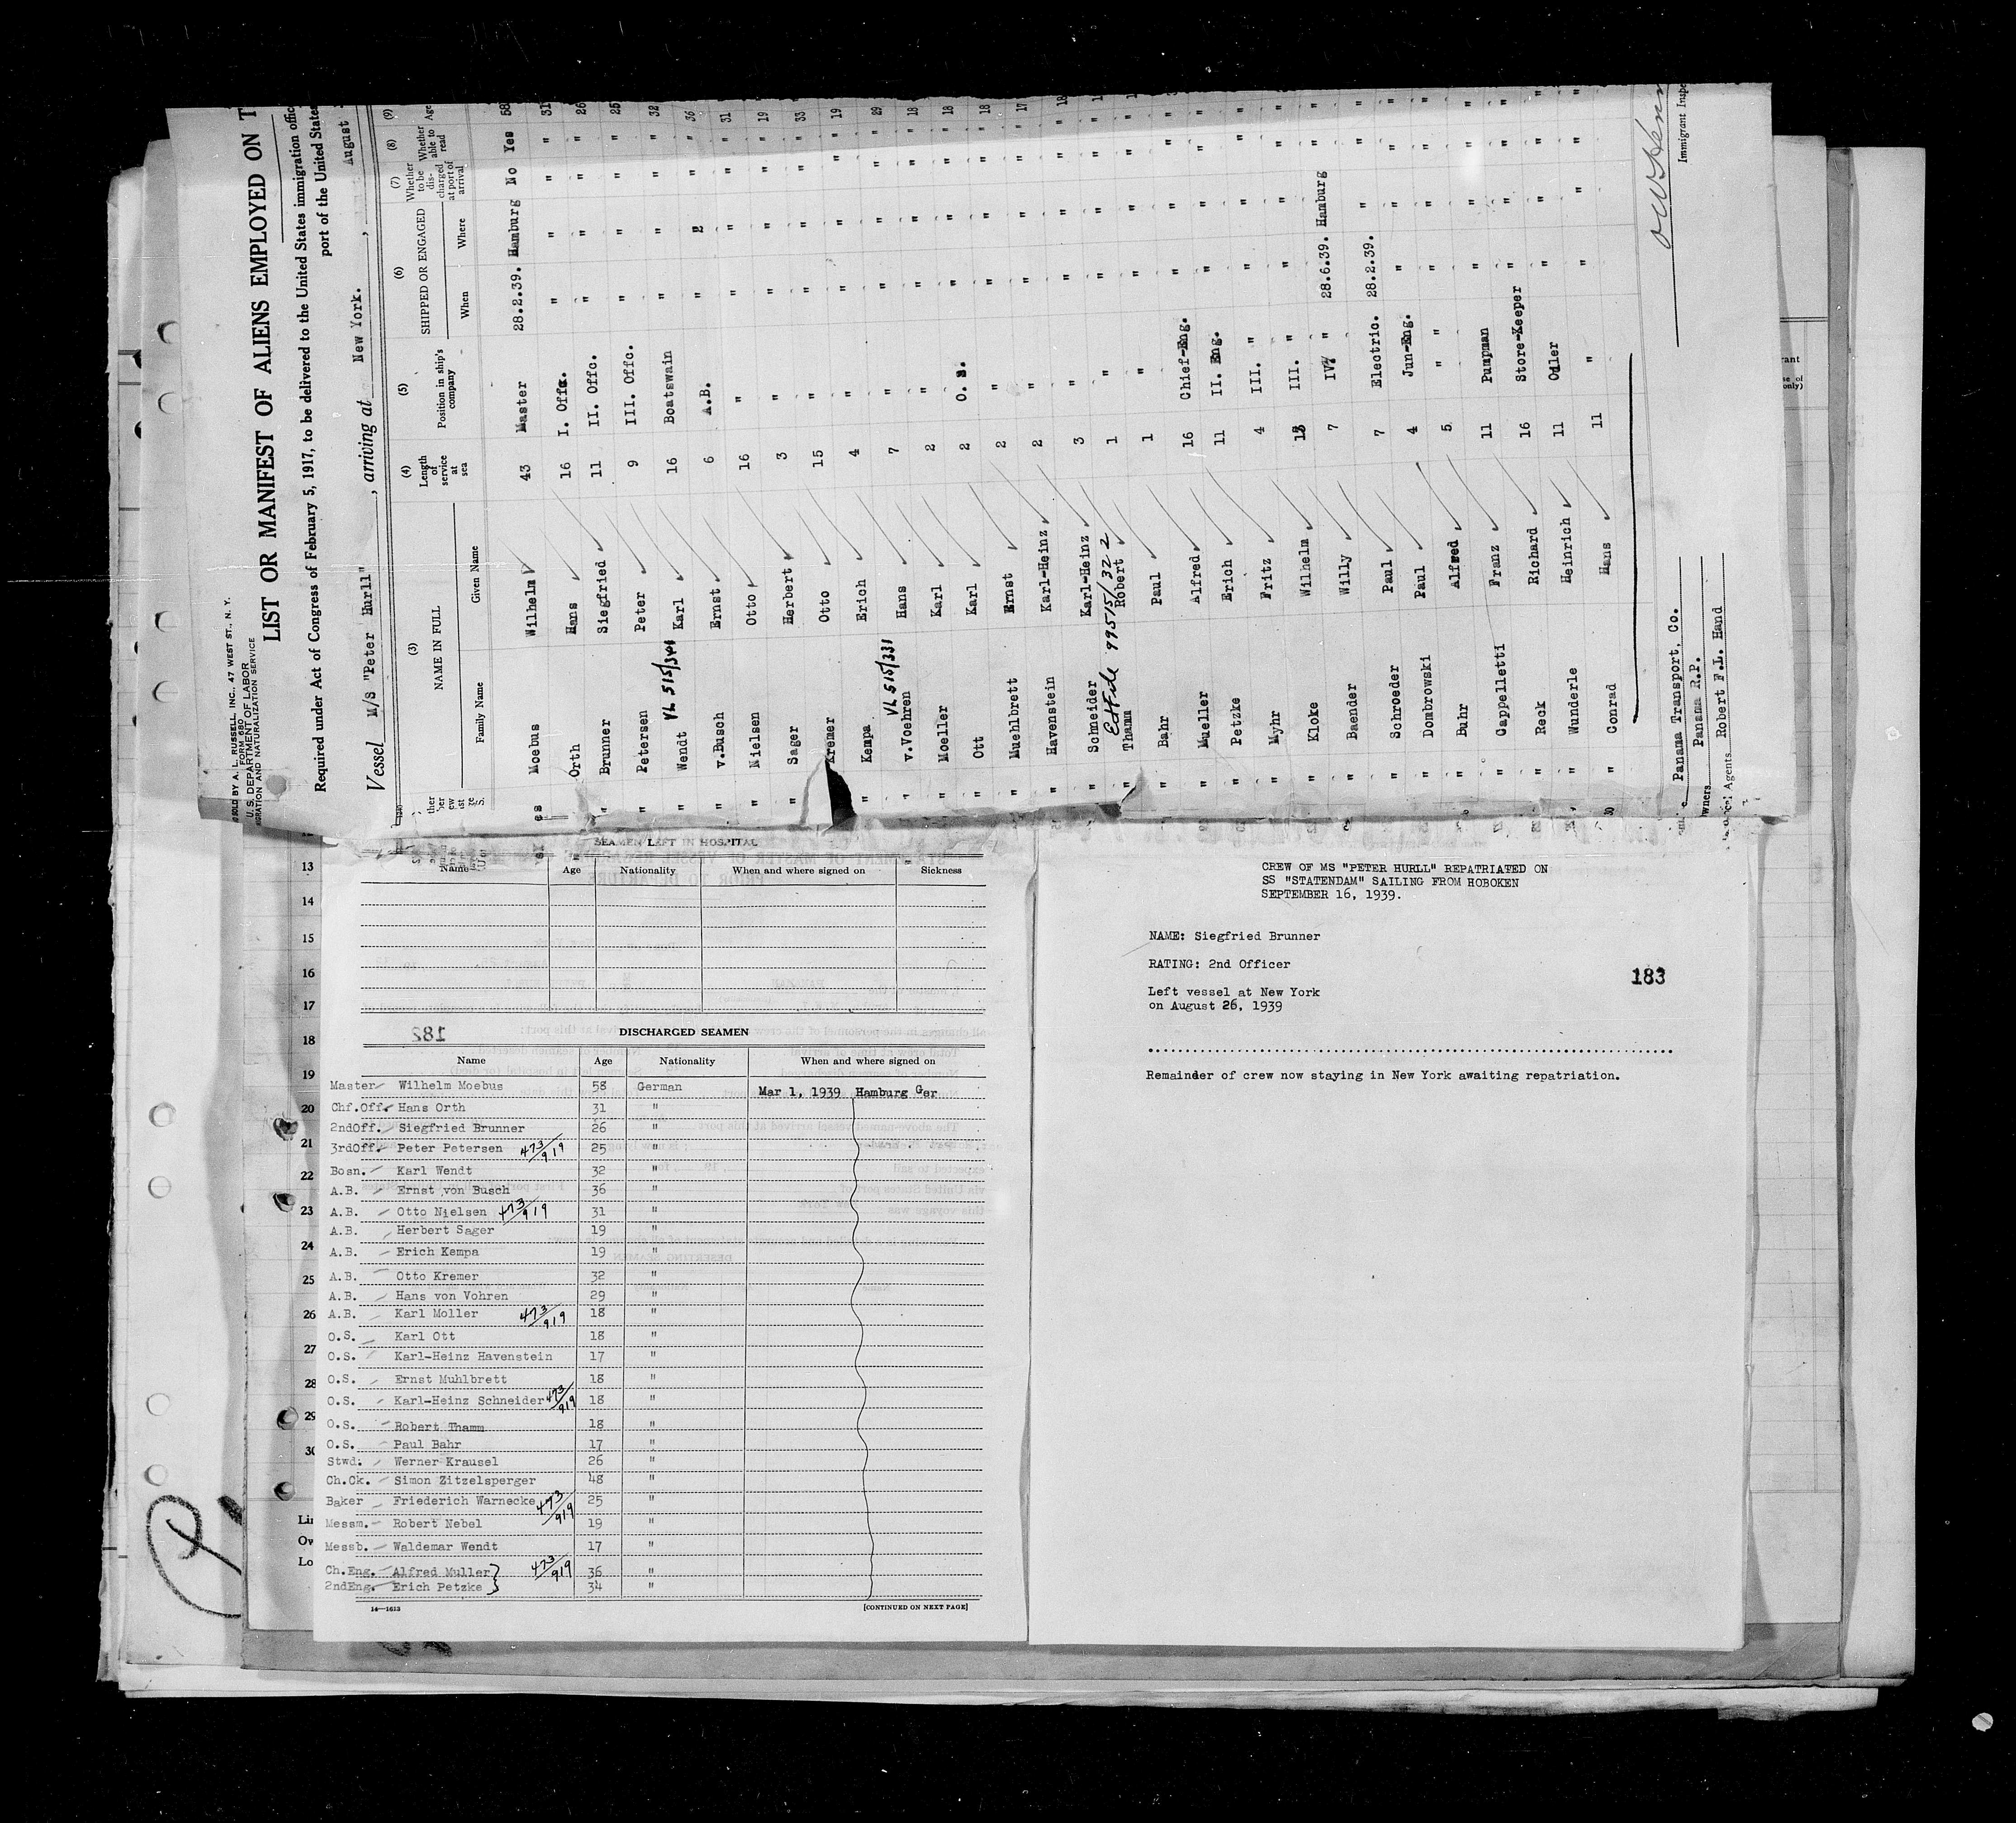 SOLD BY A. L. RUSSELL, INC., 47 WEST ST., N. Y.
FORM 680
U. S. DEPARTMENT OF LABOR
IMMIGRATION AND NATURALIZATION SERVICE
LIST OR MANIFEST OF ALIENS EMPLOYED ON T
Required under Act of Congress of February 5, 1917, to be delivered to the United States immigration offic
port of the United State
Vessel M/S "Peter Hurll" , arriving at New York. , August
(3) (4) (5) (6) (7) (8) (9)
NAME IN FULL Length of service at sea Position in ship's company SHIPPED OR ENGAGED Whether to be discharged at port of arrival Whether able to read Age
Family Name Given Name When Where
Moebus Wilhelm 43 Master 28.2.39. Hamburg No Yes 58
" Orth Hans 16 I. Offc. " " " " 31
" Brunner Siegfried 11 II. Offc. " " " " 26
" Petersen Peter 9 III. Offc. " " " " 25
" Wendt VL 515/344 Karl 16 Boatswain " " " " 32
" v.Busch Ernst 6 A.B. " " " 36
" Nielsen Otto 16 " " " " " 31
" Sager Herbert 3 " " " " " 19
Kremer Otto 15 " " " " " 33
" Kempa Erich 4 " " " " " 19
" v.Voehren VL 515/331 Hans 7 " " " " " 29
" Moeller Karl 2 " " " " " 18
" Ott Karl 2 O. S. " " " " 18
" Muehlbrett Ernst 2 " " " " " 18
" Havenstein Karl-Heinz 2 " " " " " 17
" Schneider Karl-Heinz 3 " " " " " 18
99515/322
" Thamm Robert 1 " " " " "
" Bahr Paul 1 " " " " "
" Mueller Alfred 16 Chief-Eng. " " " "
" Petzke Erich 11 II. Eng. " " " "
" Myhr Fritz 4 III. " " " " "
" Kloke Wilhelm III. " " " " "
" Baender Willy 7 IV. " 28.6.39. Hamburg " "
" Schroeder Paul 7 Electric. 28.2.39. " " "
" Dombrowski Paul 4 Jun-Eng. " " " "
" Buhr Alfred 5 " " " " " "
" Cappelletti Franz 11 Pumpman " " " "
" Reck Richard 16 Store-Keeper " " " "
" Wunderle Heinrich 11 Oiler " " " "
" Conrad Hans 11 "
Panama Transport. Co.
Owners Panama R.P.
Local Agents Robert F.L. Hand
Immigrant Inspe
13
14
15
16
17
18
19
20
21
22
23
24
25
26
27
28
29
30
SEAMEN LEFT IN HOSPITAL
Name Age Nationality When and where signed on Sickness
182
DISCHARGED SEAMEN
Name Age Nationality When and where signed on
Master Wilhelm Moebus 58 German Mar 1, 1939 Hamburg Ger
Chf.Off. Hans Orth 31 "
2ndOff. Siegfried Brunner 26 "
3rdOff. Peter Petersen 473/919 25 "
Bosn. Karl Wendt 32 "
A.B. Ernst von Busch 36 "
A.B. Otto Nielsen 473/919 31 "
A.B. Herbert Sager 19 "
A.B. Erich Kempa 19 "
A.B. Otto Kremer 32 "
A.B. Hans von Vohren 29 "
A.B. Karl Moller 473/919 18 "
O.S. Karl Ott 18 "
O.S. Karl-Heinz Havenstein 17 "
O.S. Ernst Muhlbrett 18 "
O.S. Karl-Heinz Schneider 473/919 18 "
O.S. Robert Thamm 18 "
O.S. Paul Bahr 17 "
Stwd. Werner Krausel 26 "
Ch.Ck. Simon Zitzelsperger 48 "
Baker Friederich Warnecke 473/919 25 "
Messm. Robert Nebel 19 "
Messb. Waldemar Wendt 17 "
Ch.Eng. Alfred Muller 473/919 36 "
2ndEng. Erich Petzke 34 "
14—1613 [CONTINUED ON NEXT PAGE]
CREW OF MS "PETER HURLL" REPATRIATED ON
SS "STATENDAM" SAILING FROM HOBOKEN
SEPTEMBER 16, 1939.
NAME: Siegfried Brunner
RATING: 2nd Officer
183
Left vessel at New York
on August 26, 1939
Remainder of crew now staying in New York awaiting repatriation.